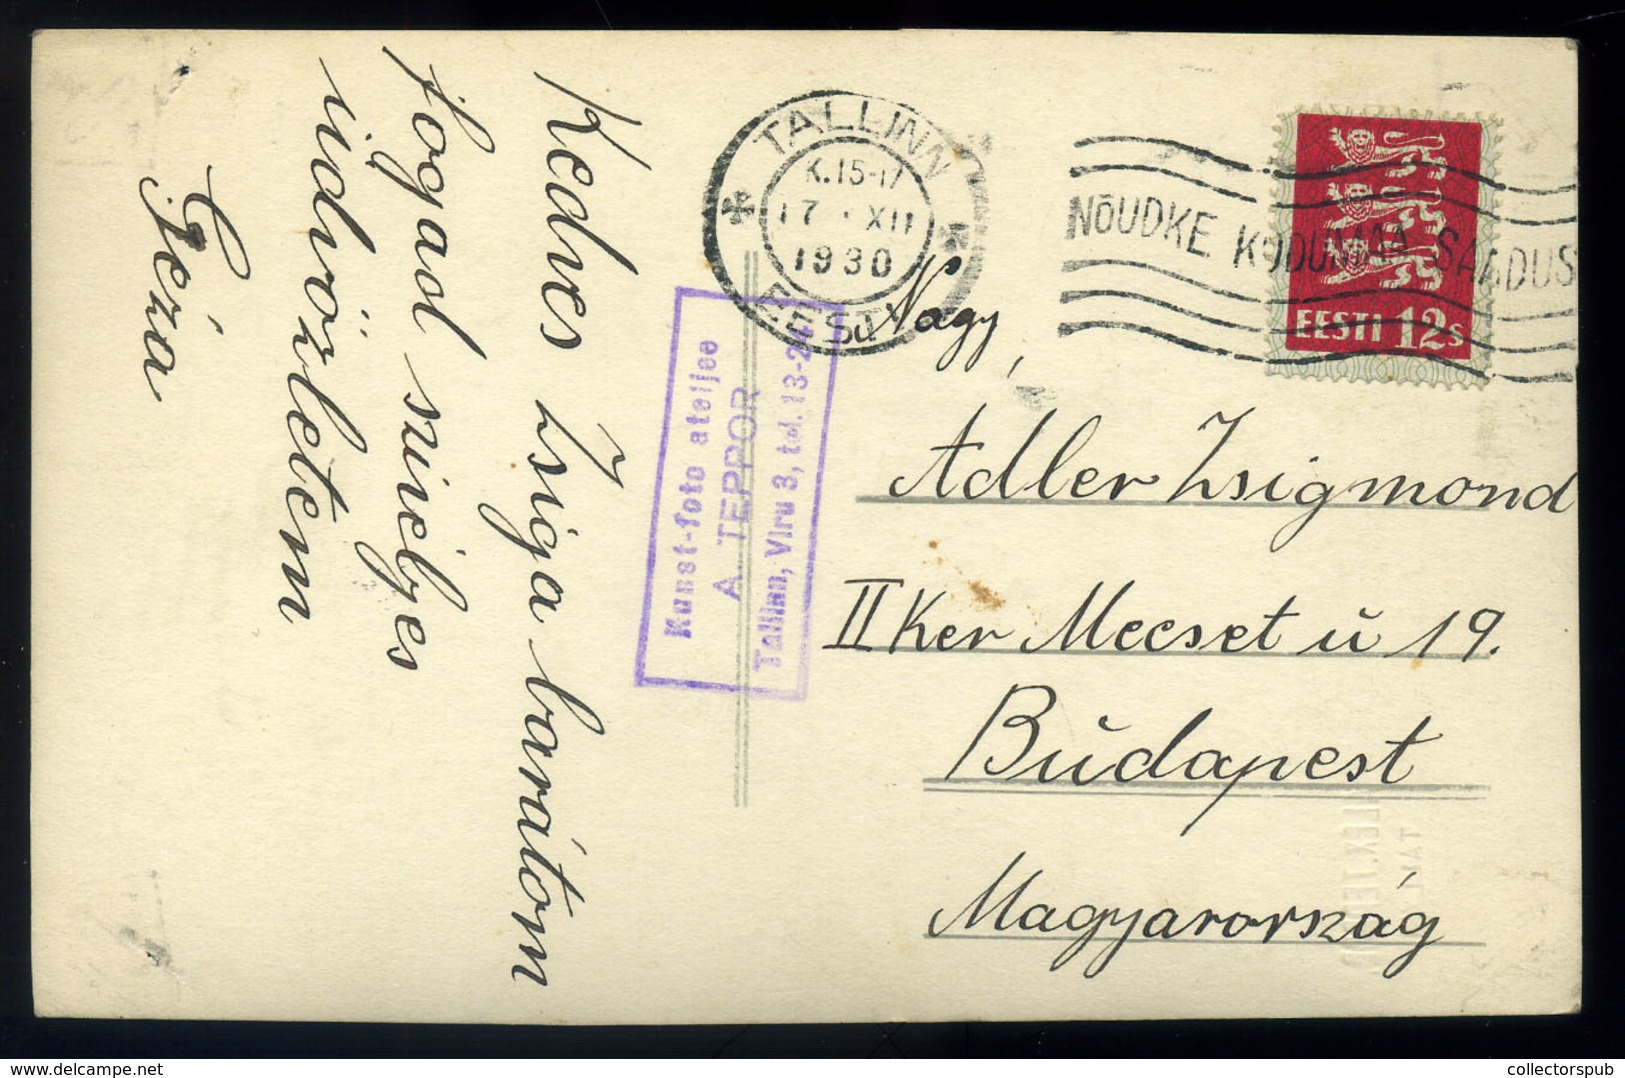 Kedves Zsiga barátom
fogad szivélyes
üdvözletem
Géza
TALLINN
K.15-17
17 . XII
1930
EESTI
NÕUDKE KODUMAA SAADUS
EESTI 12s
Kunst-foto ateljee
A. TEPPOR
Tallinn, Viru 3, tel. 13-24
Nagy,
Adler Zsigmond
II Ker Mecset ú 19.
Budapest
Magyarország
collectorspub